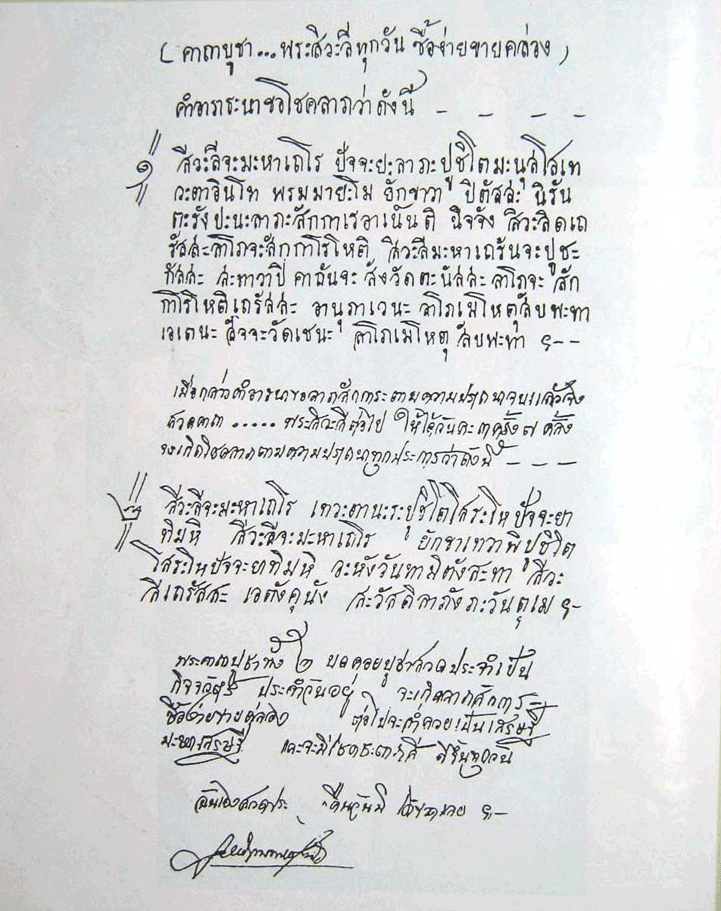 (คาถาบูชา...พระสีวะลีทุกวัน ซื้อง่ายขายคล่อง)
คำอาราธนาขอโชคลาภว่าดังนี้ - - - -
๑ สีวะลีจะมะหาเถโร ปัจจะยะลาภะปูชิโตมะนุสโสเท
วะตาอินโท พรมมายะโม ยักขาวา ปิตัสสะ นิรัน
ตะรังปะนะลาภะสักกาเรอาเนันติ นิจจัง สิวะลิดเถ
รัสสะลาโภจะสักกาโรโหติ สิวะลีมะหาเถรันจะปูชะ
กัสสะ สะทาวาปี คาถันจะ สังวัดตะนัสสะ ลาโภจะ สัก
กาโรโหติเถรัสสะ อานุภาเวนะ ลาโภเมโหตุสับพะทา
เอเตนะ สัจจะวัดเชนะ ลาโภเมโหตุ สับพะทา ฯ--
เมื่อกล่าวคำอาราธนาขอลาภสักการะตามความปรารถนาจบแล้วจึง
สวดคาถา ..... พระสิวะลีต่อไป ให้ได้วันละ ๓ ครั้ง ๗ ครั้ง
จะเกิดโชคลาภตามความปรารถนาทุกประการว่าดังนี้ - - - -
๒ สีวะลีจะมะหาเถโร เทวะตานะระปูชิโตโสระโหปัจจะยา
ทิมหิ สีวะลีจะมะหาเถโร ยักขาเทวาพิปูชิโต
โสระโหปัจจะยาทิมหิ อะหังวันทามิตังสะทา สีวะ
ลีเถรัสสะ เอตังคุนัง สะวัสดิลาภังภะวันตุเม ฯ-
พระคาถาบูชาทั้ง ๒ บทคอยบูชาสวดประจำเป็น
กิจจวัตร ประจำวันอยู่ จะเกิดลาภสักการะ
ซื้อง่ายขายคล่อง ต่อไปจะร่ำรวยเป็นเศรษฐี
มะหาเศรษฐี และจะมีโชคชะตาดี